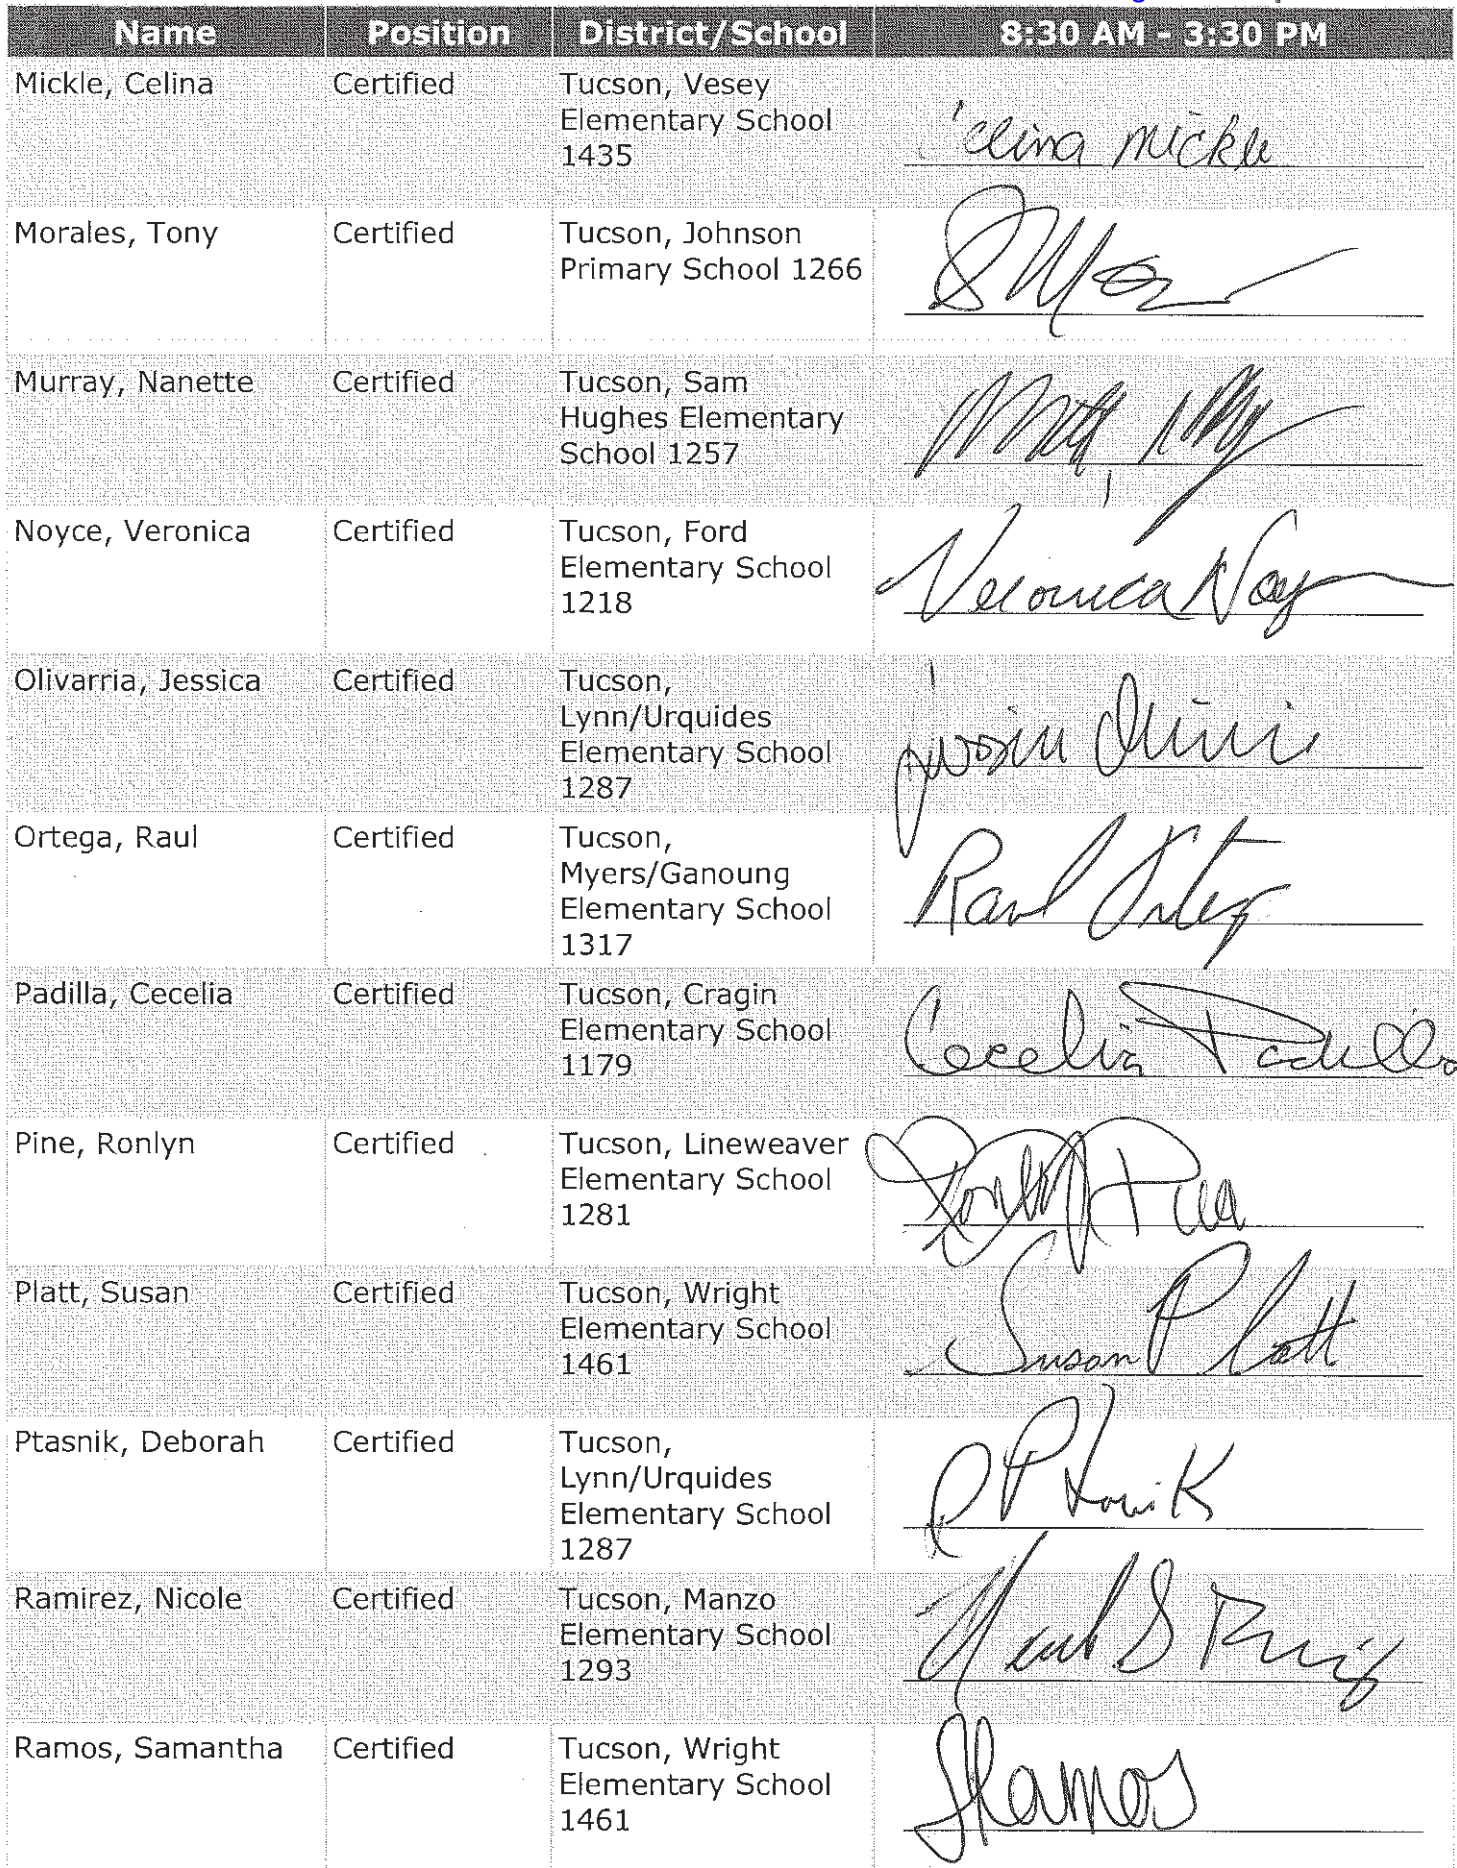 Name Position District/School 8:30 AM - 3:30 PM
Mickle, Celina Certified Tucson, Vesey
Elementary School
1435
Celina Mickle
Morales, Tony Certified Tucson, Johnson
Primary School 1266
Murray, Nanette Certified Tucson, Sam
Hughes Elementary
School 1257
Noyce, Veronica Certified Tucson, Ford
Elementary School
1218
Veronica Noyce
Olivarria, Jessica Certified Tucson,
Lynn/Urquides
Elementary School
1287
Ortega, Raul Certified Tucson,
Myers/Ganoung
Elementary School
1317
Raul Ortega
Padilla, Cecelia Certified Tucson, Cragin
Elementary School
1179
Cecelia Padilla
Pine, Ronlyn Certified Tucson, Lineweaver
Elementary School
1281
Platt, Susan Certified Tucson, Wright
Elementary School
1461
Susan Platt
Ptasnik, Deborah Certified Tucson,
Lynn/Urquides
Elementary School
1287
Ramirez, Nicole Certified Tucson, Manzo
Elementary School
1293
Ramos, Samantha Certified Tucson, Wright
Elementary School
1461
SRamos